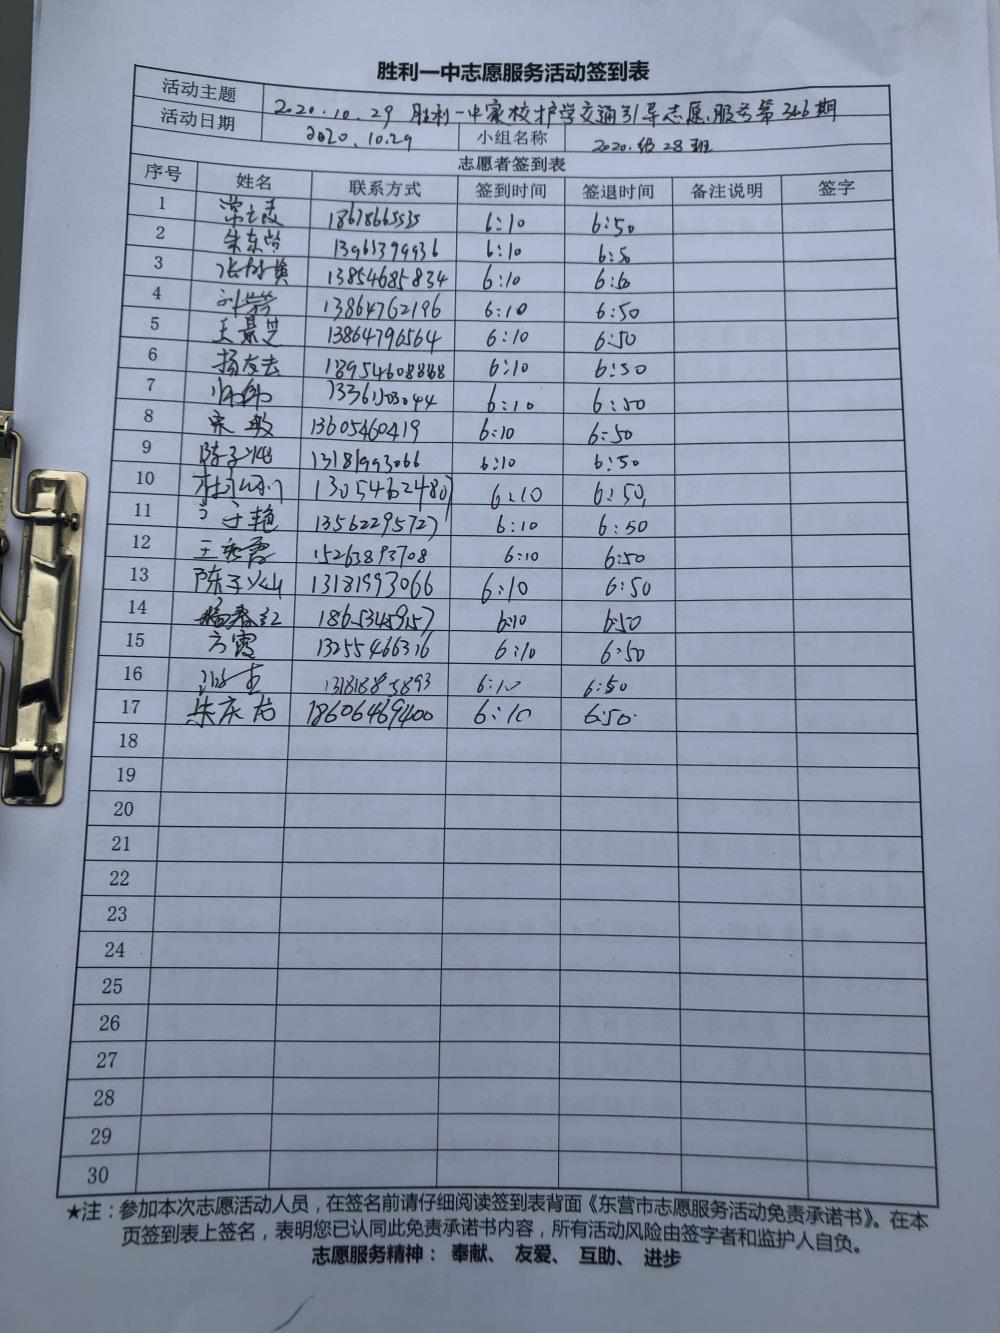 胜利一中志愿服务活动签到表
活动主题 2020.10.29 胜利一中家校护学交通引导志愿服务第346期
活动日期 2020.10.29 小组名称 2020.级28班
志愿者签到表
序号 姓名 联系方式 签到时间 签退时间 备注说明 签字
1 18678665535 6:10 6:50
2 朱东営 13961399936 6:10 6:50
3 13854685834 6:10 6:50
4 刘芳 13864762196 6:10 6:50
5 王景芝 13864796564 6:10 6:50
6 杨友云 18954608868 6:10 6:50
7 13361503044 6:10 6:50
8 宋敏 13605460419 6:10 6:50
9 陈子灿 13181993066 6:10 6:50
10 13054624807 6:10 6:50
11 于艳 13562295727 6:10 6:50
12 王秀霞 15263893708 6:10 6:50
13 陈子灿 13181993066 6:10 6:50
14 18653459157 6:10 6:50
15 方霞 13255466316 6:10 6:50
16 13181885893 6:10 6:50
17 朱庆龙 18606469400 6:10 6:50
18
19
20
21
22
23
24
25
26
27
28
29
30
★注：参加本次志愿活动人员，在签名前请仔细阅读签到表背面《东营市志愿服务活动免责承诺书》。在本
页签到表上签名，表明您已认同此免责承诺书内容，所有活动风险由签字者和监护人自负。
志愿服务精神： 奉献、 友爱、 互助、 进步